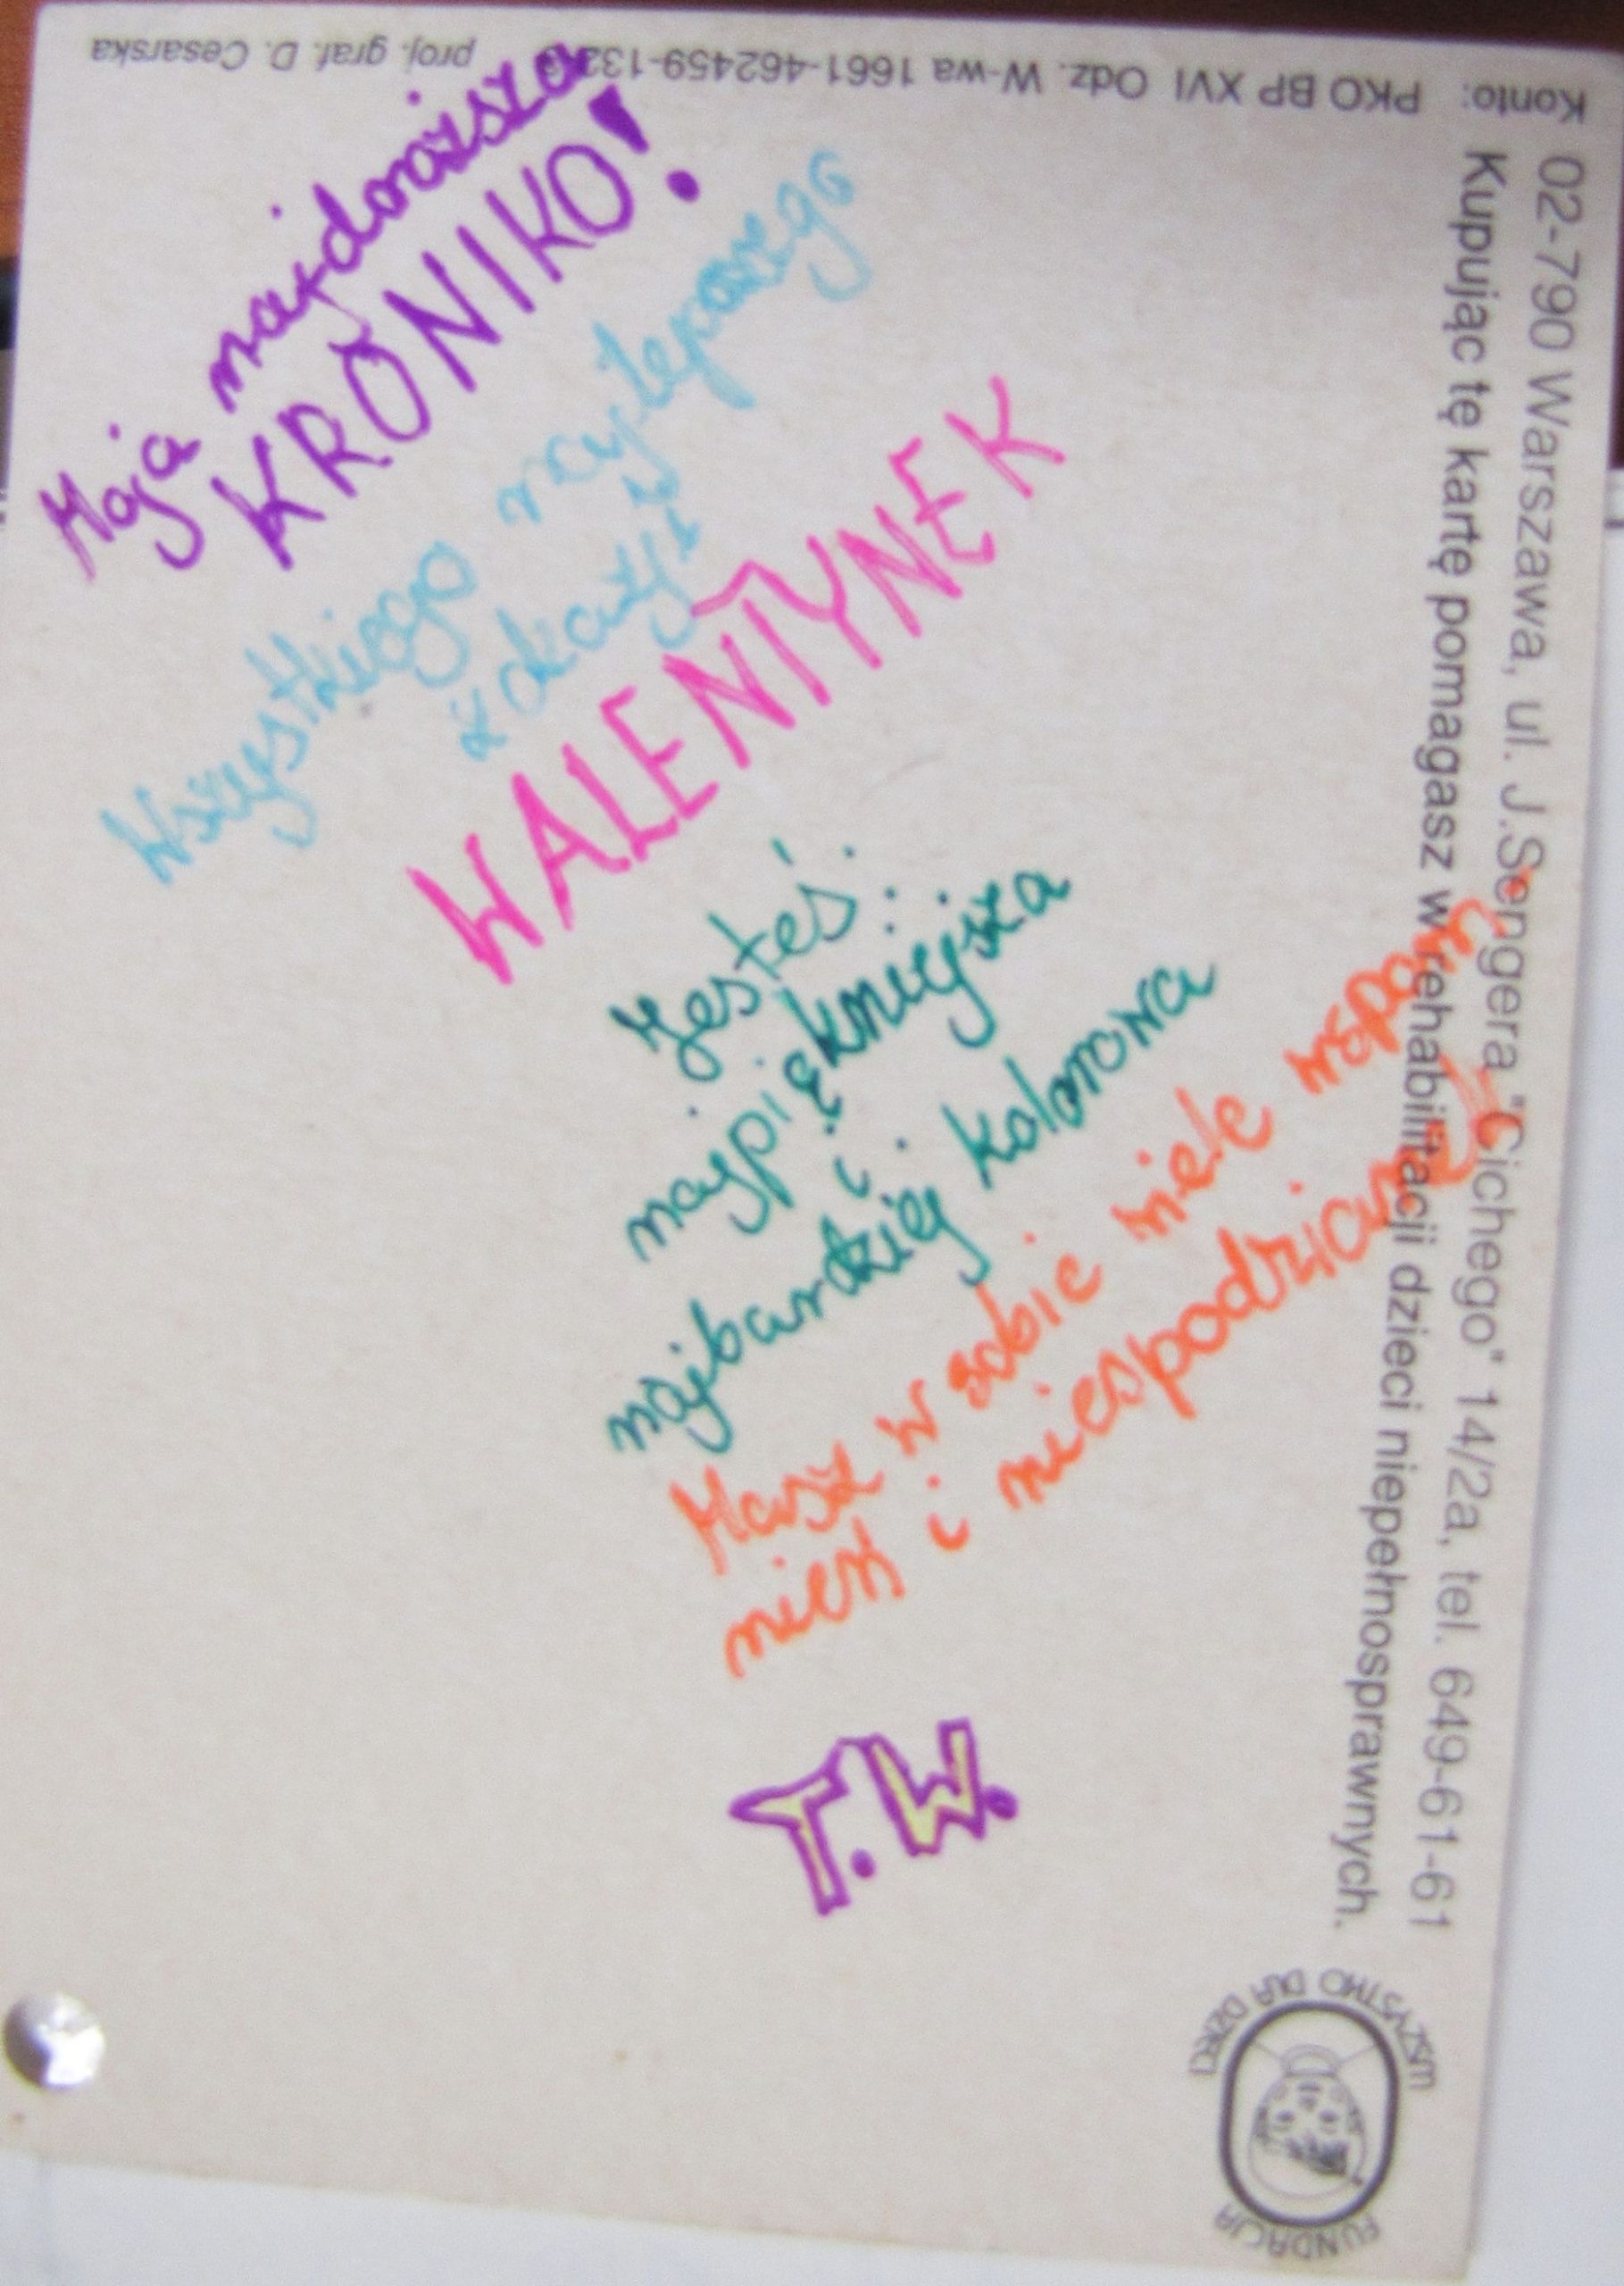 Moja najdroższa
KRONIKO!
Wszystkiego najlepszego
z okazji
WALENTYNEK
Jesteś:
najpiękniejsza
i
najbardziej kolorowa
Masz w sobie wiele wspom
nień i niespodzianek
T.W.
Konto: PKO BP XVI Odz. W-wa 1661-462459-132
proj. graf. D. Cesarska
02-790 Warszawa, ul. J.Sengera "Cichego" 14/2a, tel. 649-61-61
Kupując tę kartę pomagasz w rehabilitacji dzieci niepełnosprawnych.
FUNDACJA
WSZYSTKO DLA DZIECI